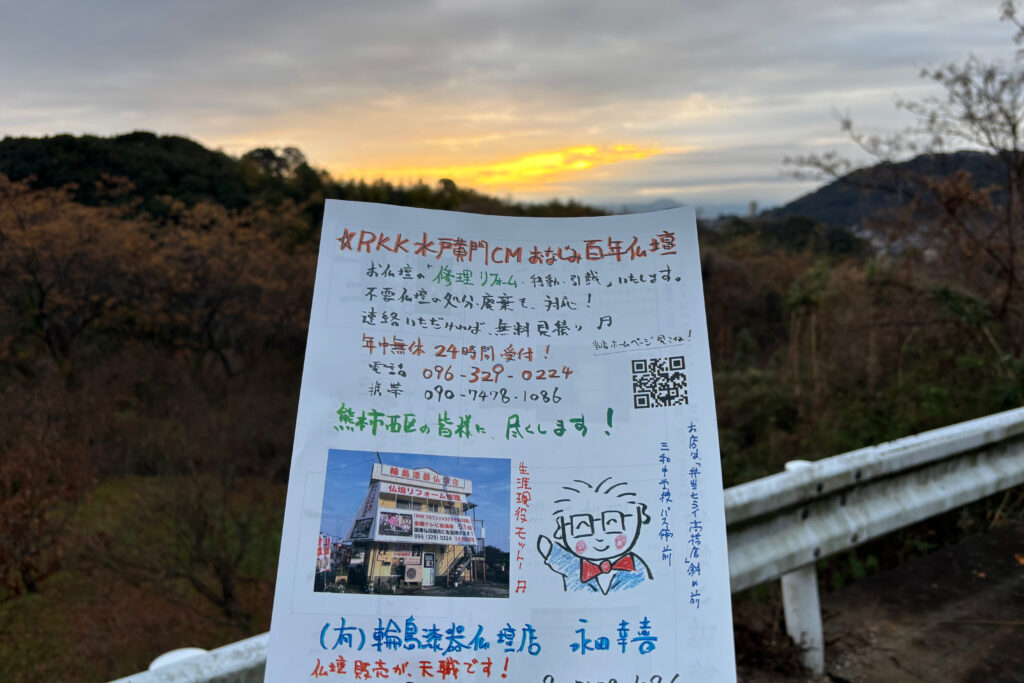 ☆RKK水戸黄門CMおなじみ百年仏壇
お仏壇の「修理リフォーム・移動・引越」いたします。
不要仏壇の処分・廃棄も、対応！
連絡いただければ、無料見積り 円
年中無休24時間受付！
当店ホームページ見てね！
電話 096-329-0224
携帯 090-7478-1086
熊本市西区の皆様に、尽くします！
輪島漆器仏壇店
仏壇リフォーム修理
096(329)0224
生涯現役モットー 円
三和中学校バス停前
お店は、「弁当ヒライ高橋店」斜め前
(有)輪島漆器仏壇店 永田幸喜
仏壇販売が、天職です！